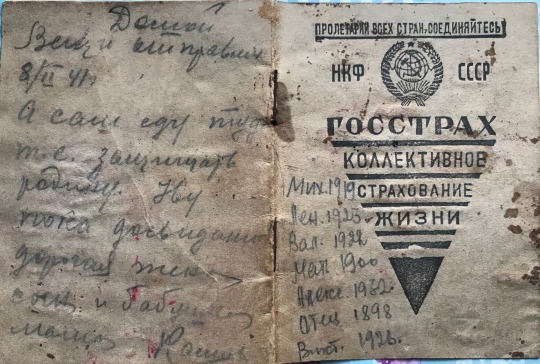 Домой
Вещи отправил
41г
А сам еду туда
т.е. защищать
родину Ну
пока досвидание
дорогая
сын и
мама
ПРОЛЕТАРИИ ВСЕХ СТРАН, СОЕДИНЯЙТЕСЬ!
НКФ СССР
ГОССТРАХ
КОЛЛЕКТИВНОЕ
СТРАХОВАНИЕ
ЖИЗНИ
Мих. 1919
Лен. 1925.
Вал. 1928
Мат. 1900
Алекс. 1932.
Отец 1898
Викт. 1926.